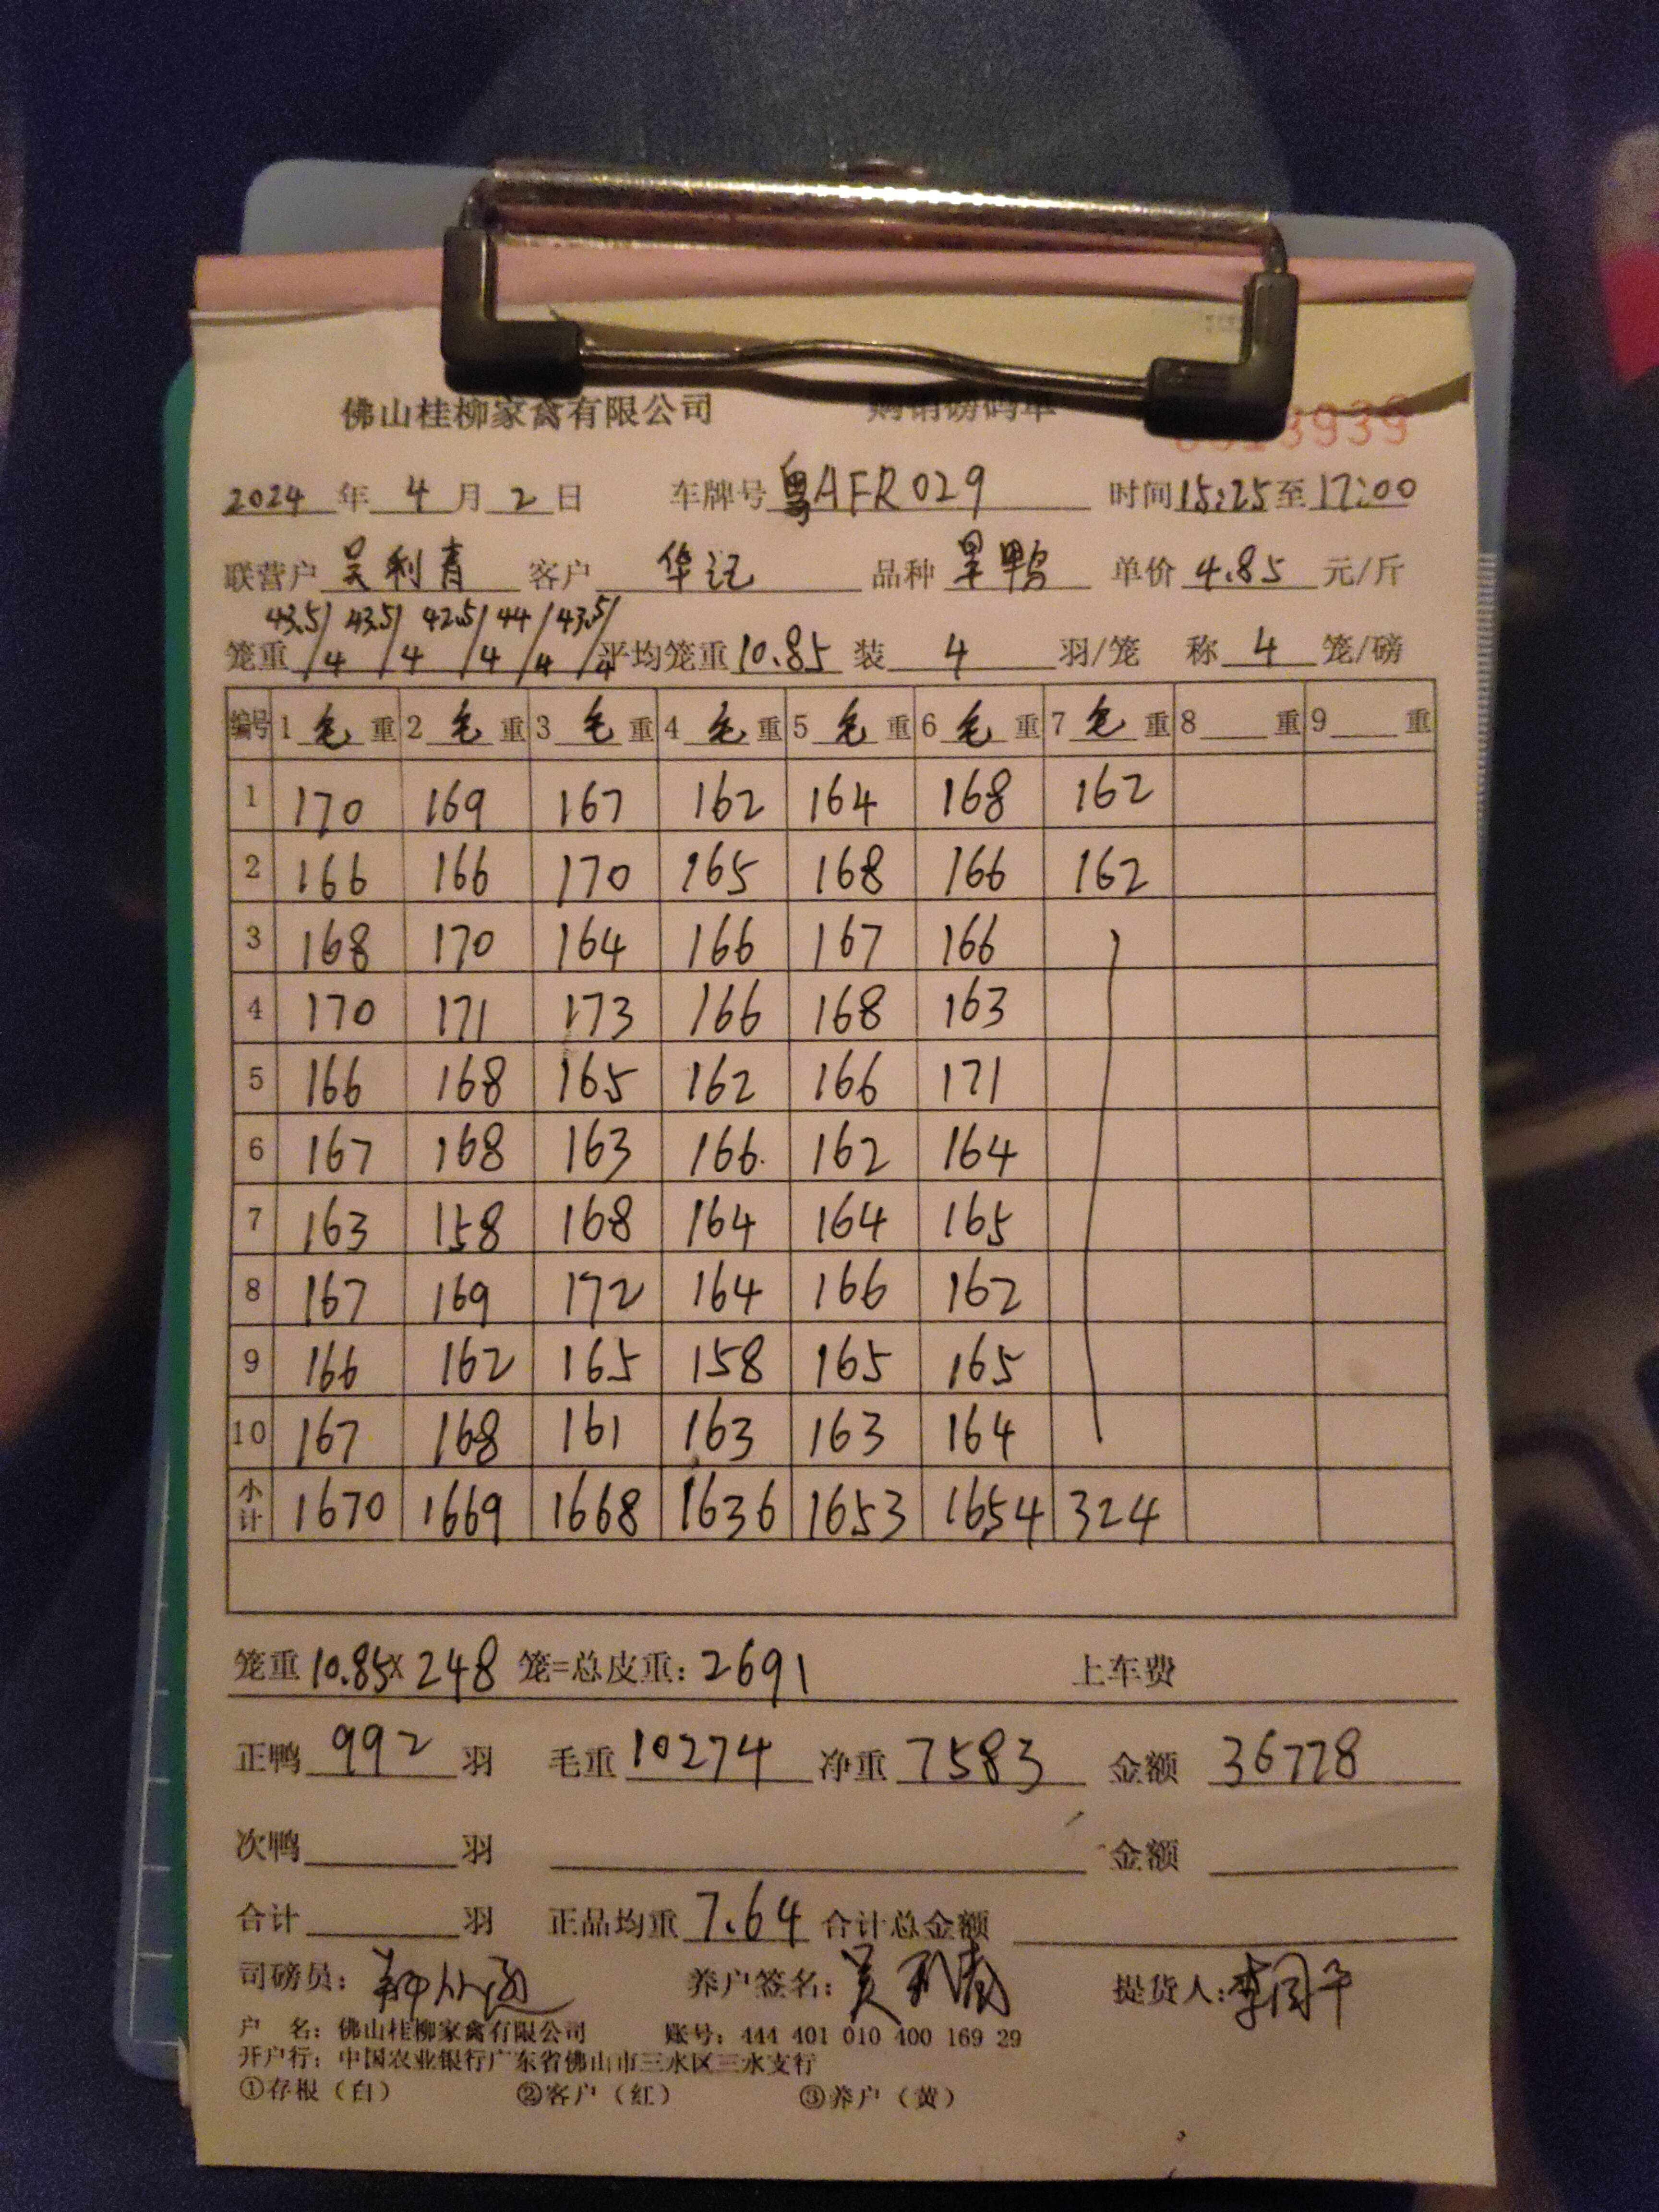 佛山桂柳家禽有限公司 购销磅码单
3939
2024年4月2日 车牌号粤AFR029 时间15:25至17:00
联营户吴利青 客户华记 品种旱鸭 单价4.85元/斤
笼重43.5/4 43.5/4 42.5/4 44/4 43.5/4 平均笼重10.85 装4羽/笼 称4笼/磅
编号 1毛重 2毛重 3毛重 4毛重 5毛重 6毛重 7毛重 8重 9重
1 170 169 167 162 164 168 162
2 166 166 170 165 168 166 162
3 168 170 164 166 167 166
4 170 171 173 166 168 163
5 166 168 165 162 166 171
6 167 168 163 166 162 164
7 163 158 168 164 164 165
8 167 169 172 164 166 162
9 166 162 165 158 165 165
10 167 168 161 163 163 164
小计 1670 1669 1668 1636 1653 1654 324
笼重10.85×248笼=总皮重:2691 上车费
正鸭992羽 毛重10274 净重7583 金额36778
次鸭羽 金额
合计羽 正品均重7.64 合计总金额
司磅员: 养户签名:吴利青 提货人:
户 名:佛山桂柳家禽有限公司 账号:444 401 010 400 169 29
开户行:中国农业银行广东省佛山市三水区三水支行
①存根(白) ②客户(红) ③养户(黄)